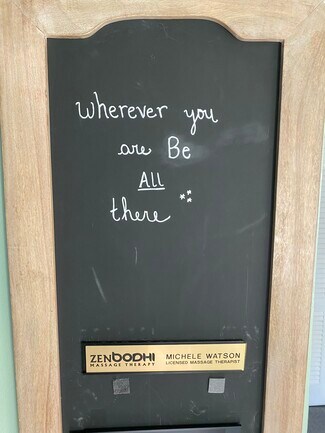 Wherever you
are Be
All
there
ZENBODHI MICHELE WATSON
MASSAGE THERAPY LICENSED MASSAGE THERAPIST